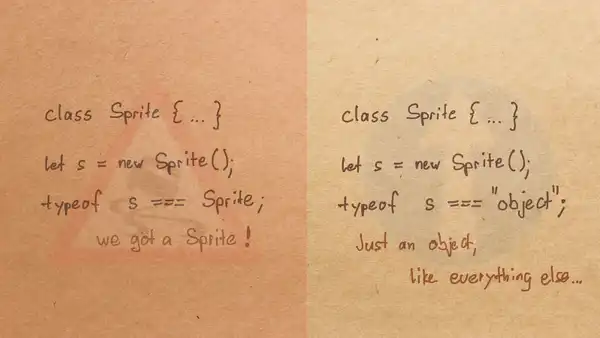 class Sprite { ... }
let s = new Sprite();
typeof s === Sprite;
we got a Sprite!
class Sprite { ... }
let s = new Sprite();
typeof s === "object";
Just an object,
like everything else...